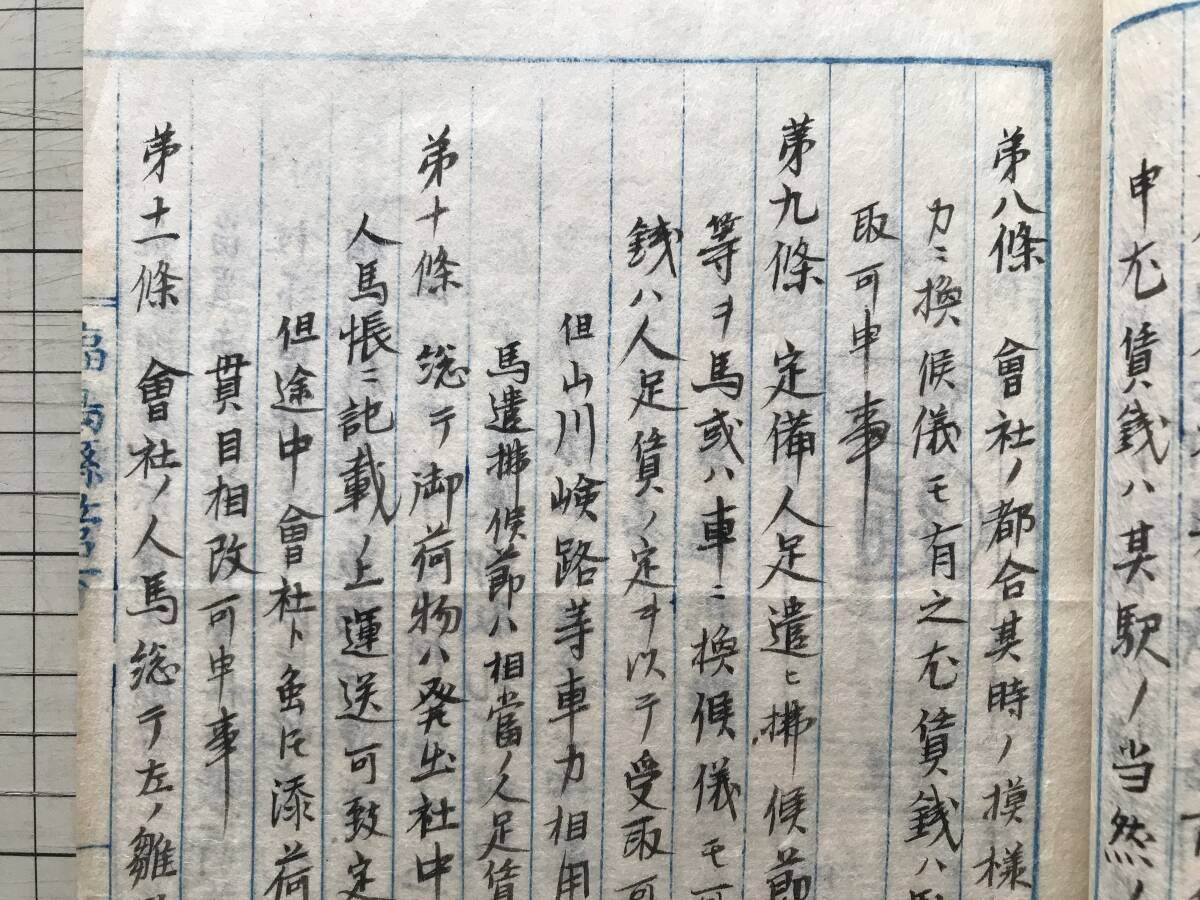 申尤賃銭ハ其駅ノ当然ノ
第八條　會社ノ都合其時ノ摸様
力ニ換候儀モ有之尤賃銭ハ
取可申事
第九條　定備人足遣ヒ拂候節
等ヲ馬或ハ車ニ換候儀モ可
銭ハ人足賃ノ定ヲ以テ受取可
但山川嶮路等車力相用
馬遣拂候節ハ相當ノ人足賃
第十條　総テ御荷物ハ発出社中
人馬帳ニ記載ノ上運送可致定
但途中會社ト雖圧添荷
貫目相改可申事
第十一條　會社ノ人馬総テ左ノ雛
福島縣